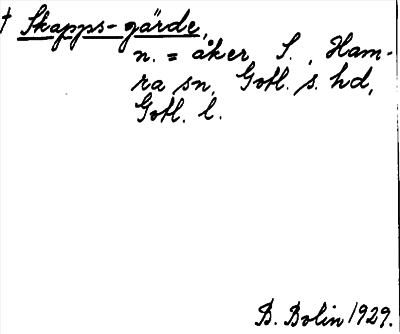 † Skapps-gärde,
n. = åker, S., Ham-
ra sn, Gotl. s. hd,
Gotl. l.
B. Bolin 1929.